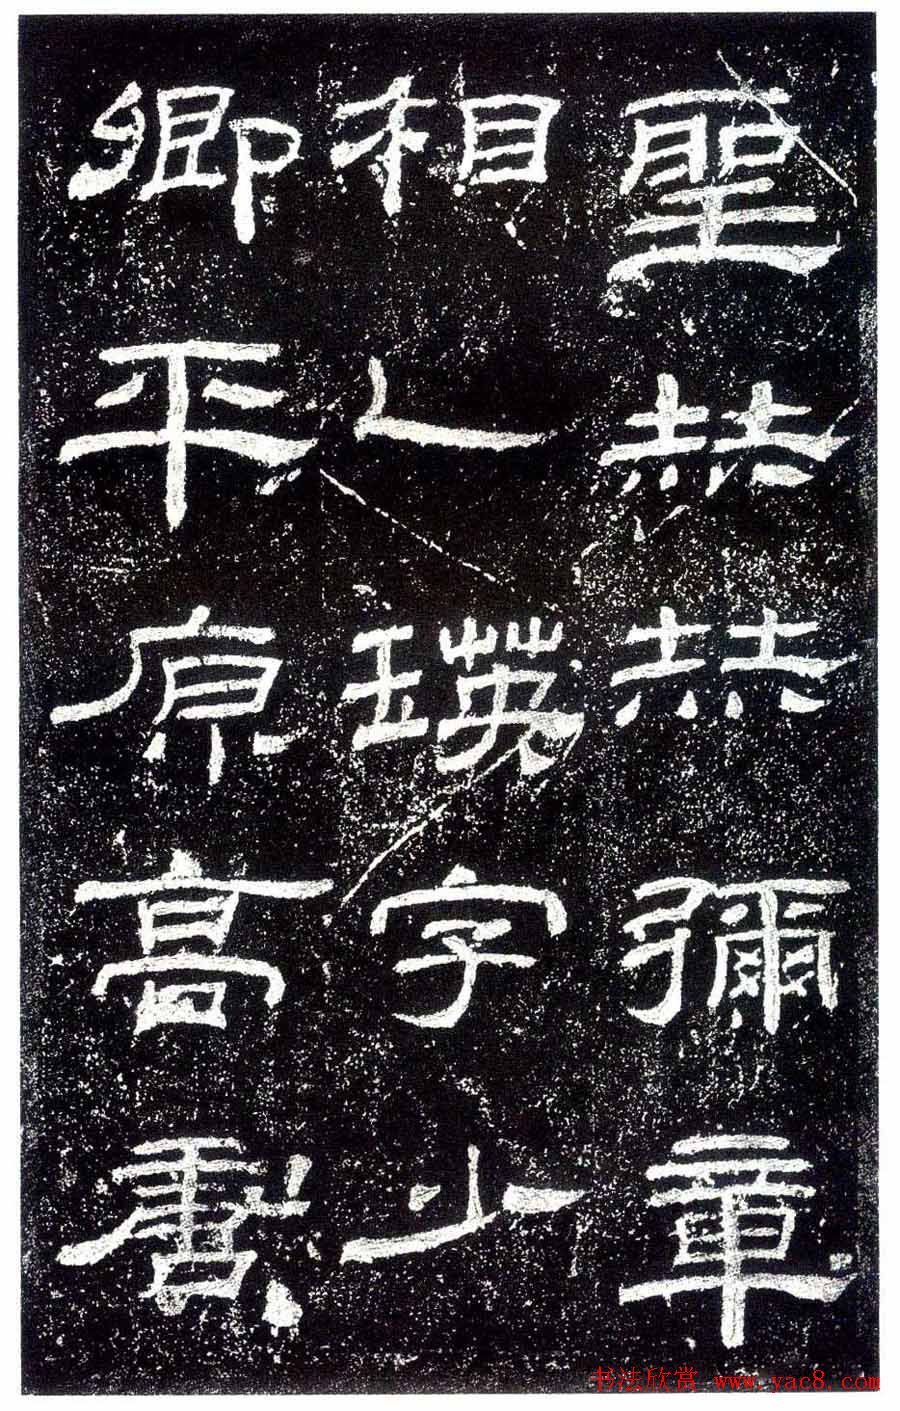 聖赫赫彌章
相乙瑛字少
卿平原高唐
书法欣赏 www.yac8.com